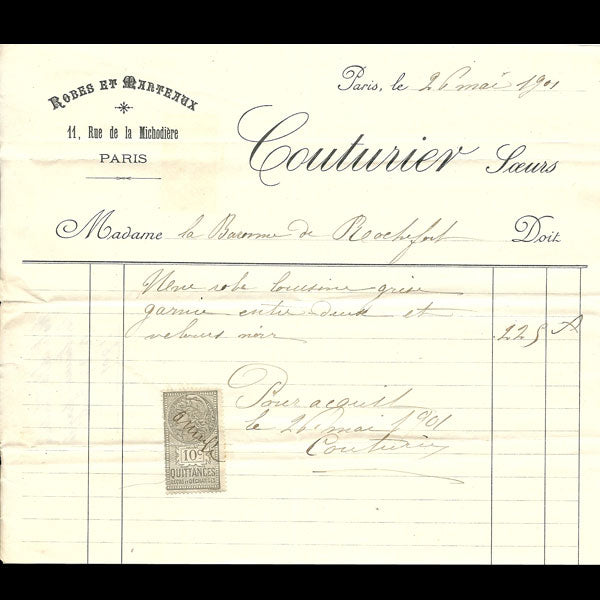 ROBES ET MANTEAUX
11, Rue de la Michodière
PARIS
Paris, le 26 mai 1901
Couturier Sœurs
Madame la Baronne de Rochefort Doit
Une robe louisine grise
garnie entre deux et
velours noir 225 f
Pour acquit
le 26 mai 1901
Couturier
10c
QUITTANCES
REÇUS ET DÉCHARGES